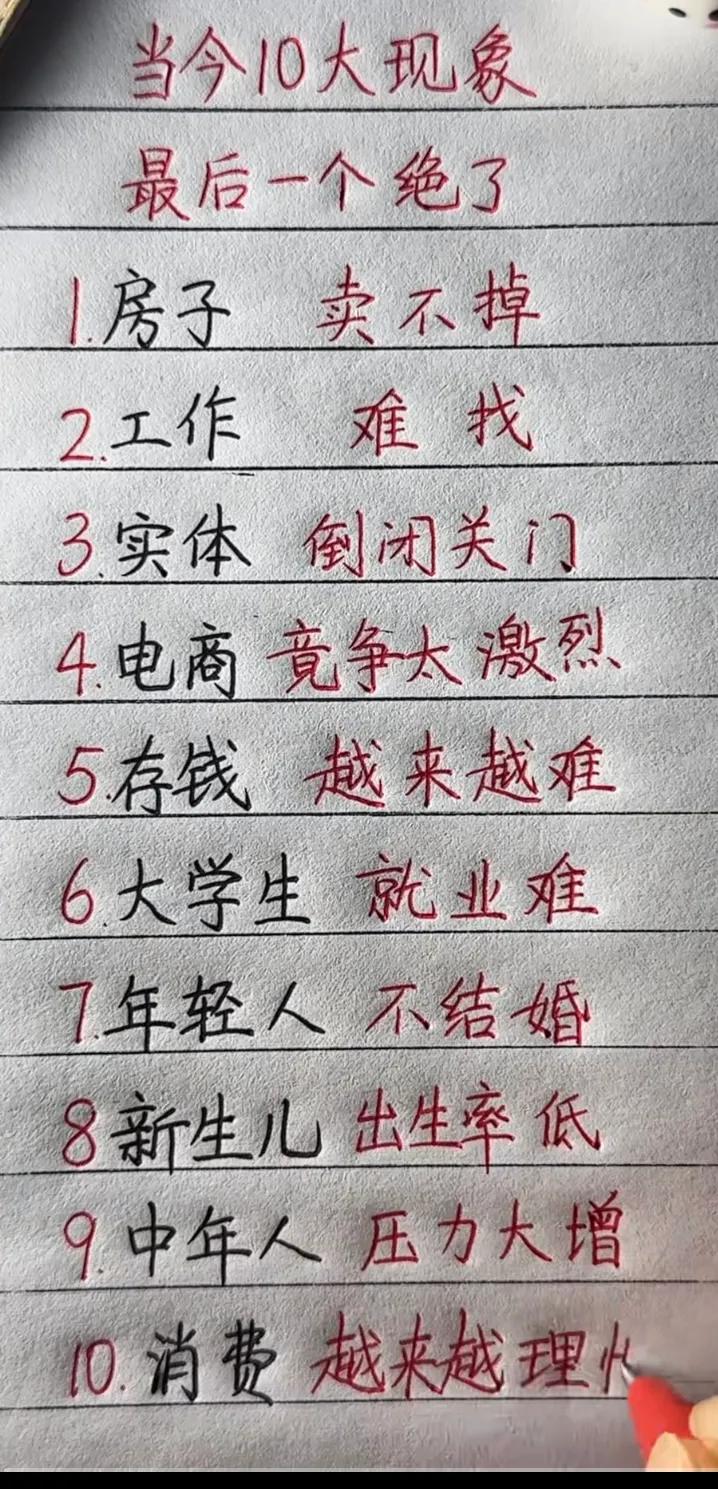 当今10大现象
最后一个绝了
1.房子 卖不掉
2.工作 难找
3.实体 倒闭关门
4.电商 竟争太激烈
5.存钱 越来越难
6.大学生 就业难
7.年轻人 不结婚
8新生儿 出生率低
9.中年人 压力大增
10.消费 越来越理